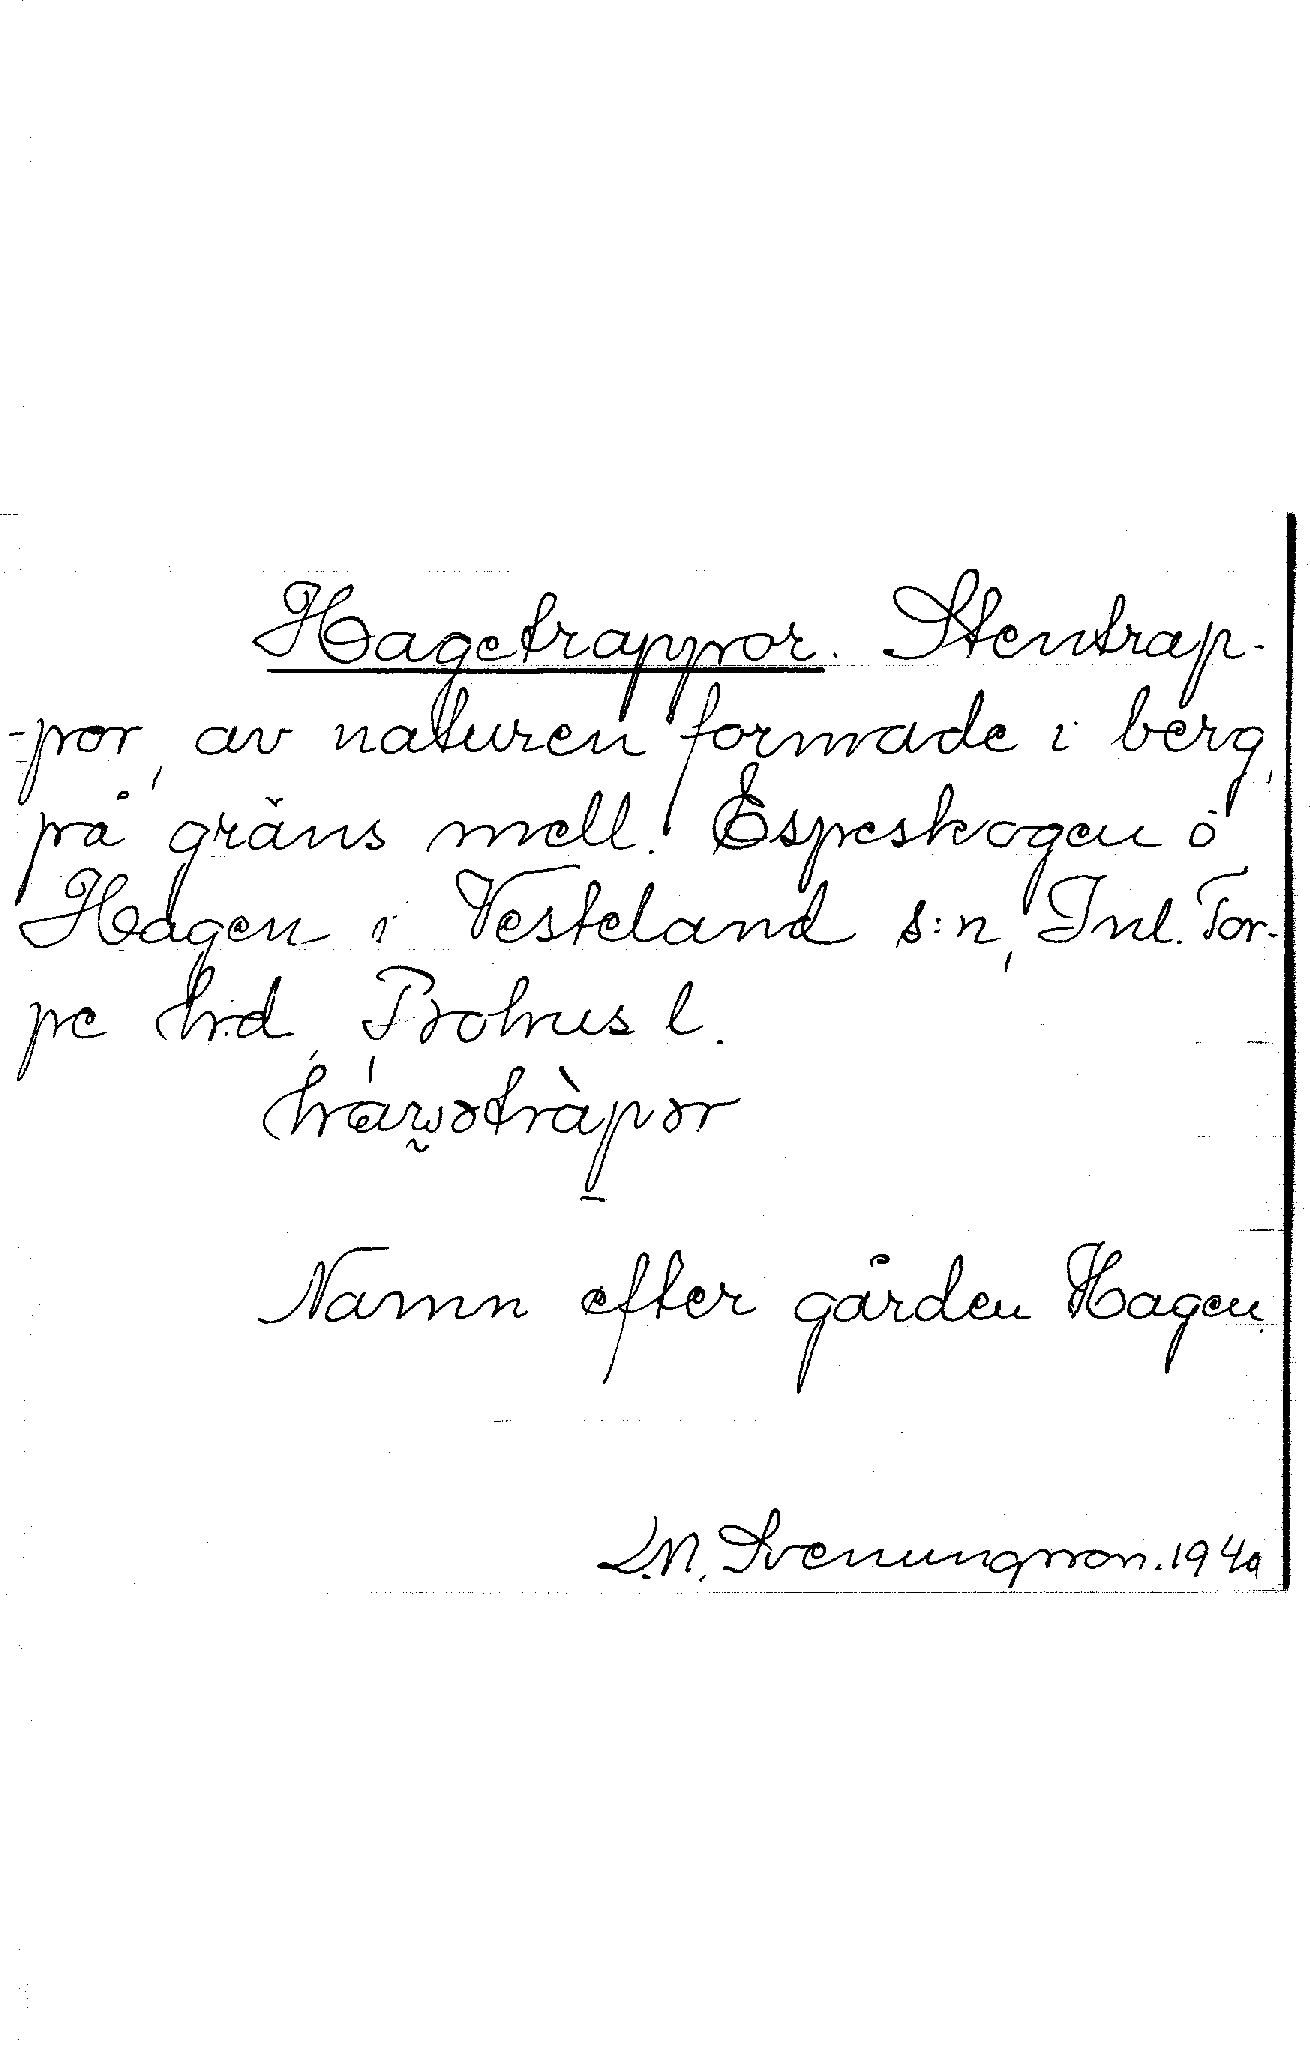 Hagetrappor. Stentrap-
-por, av naturen formade i berg,
på gräns mell. Espeskogen o
Hagen i Vesteland s:n, Inl. Tor-
pe h:d, Bohus l.
Namn efter gården Hagen.
L.N. Svenungsson. 1940